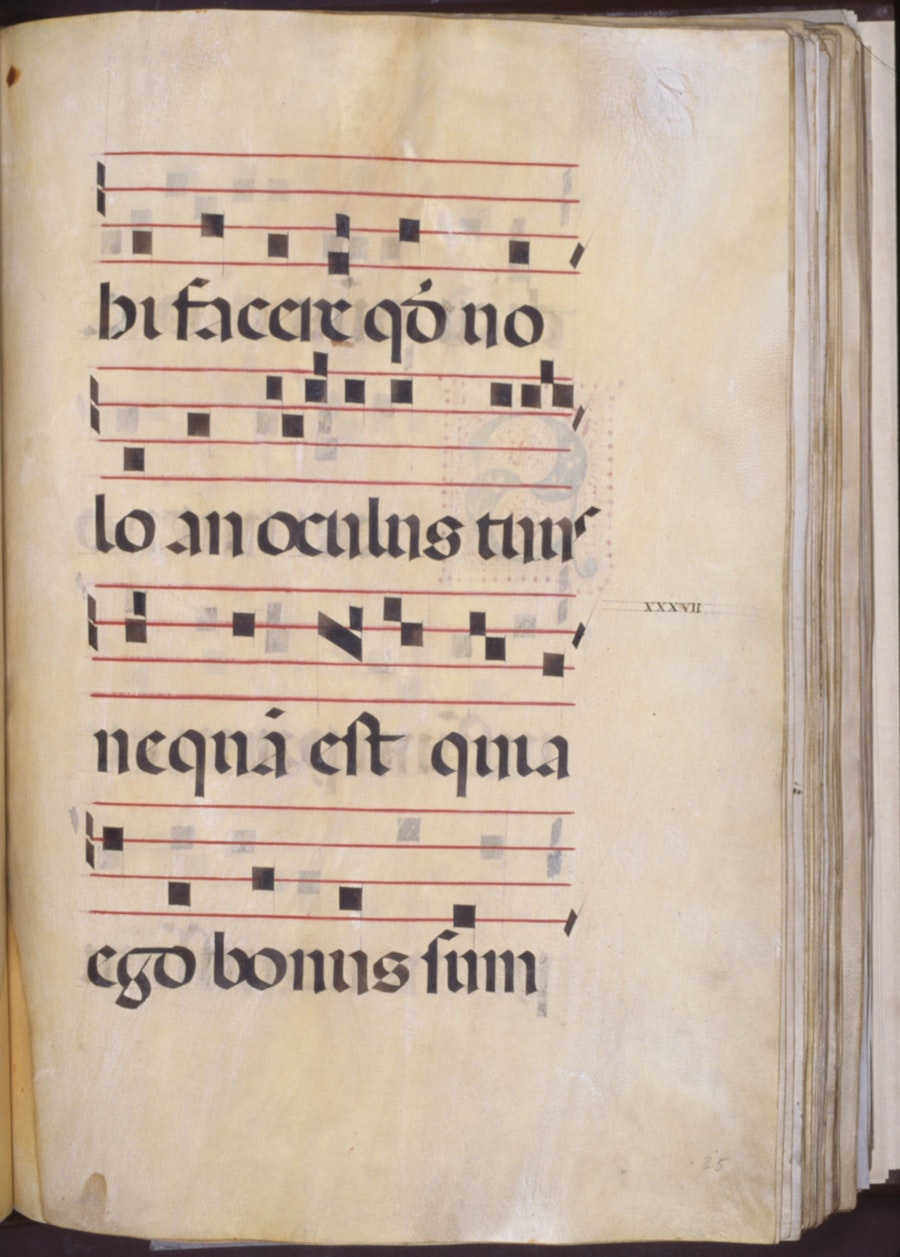 bi facere qđ no
lo an oculus tuus
XXXVII
nequā est quia
ego bonus sum
35